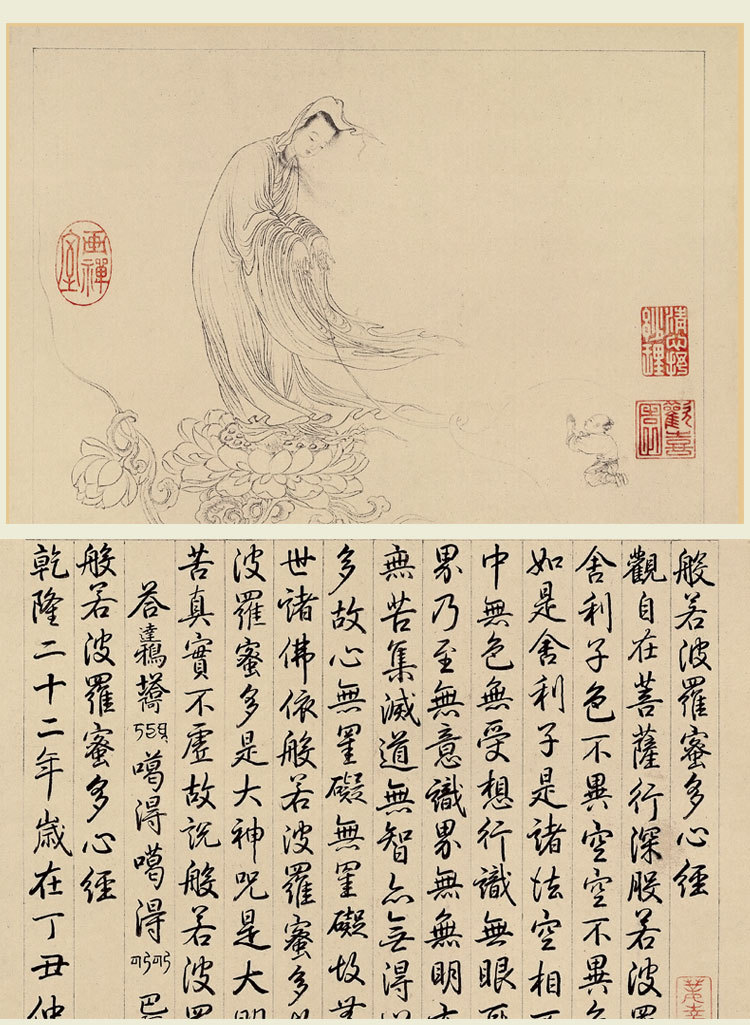 画禪室
清心抒妙理
般若波羅蜜多心經
觀自在菩薩行深般若波羅
舍利子色不異空空不異色
如是舍利子是諸法空相不
中無色無受想行識無眼耳
界乃至無意識界無無明亦
無苦集滅道無智亦無得以
多故心無罣礙無罣礙故無
世諸佛依般若波羅蜜多故
波羅蜜多是大神呪是大明
苦真實不虛故說般若波羅
荅達鴉噶得噶得巴
般若波羅蜜多心經
乾隆二十二年歲在丁丑仲